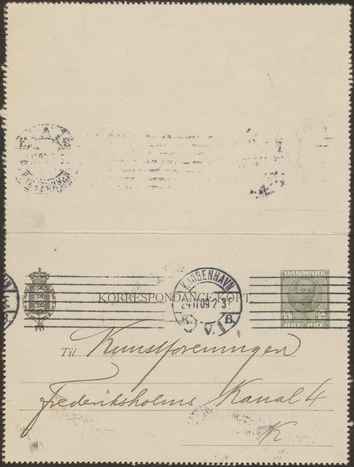 DANMARK
KORRESPONDANCE-KORT
KJØBENHAVN
24.11.09 2-3
Til Kunstforeningen
Frederiksholms Kanal 4
K